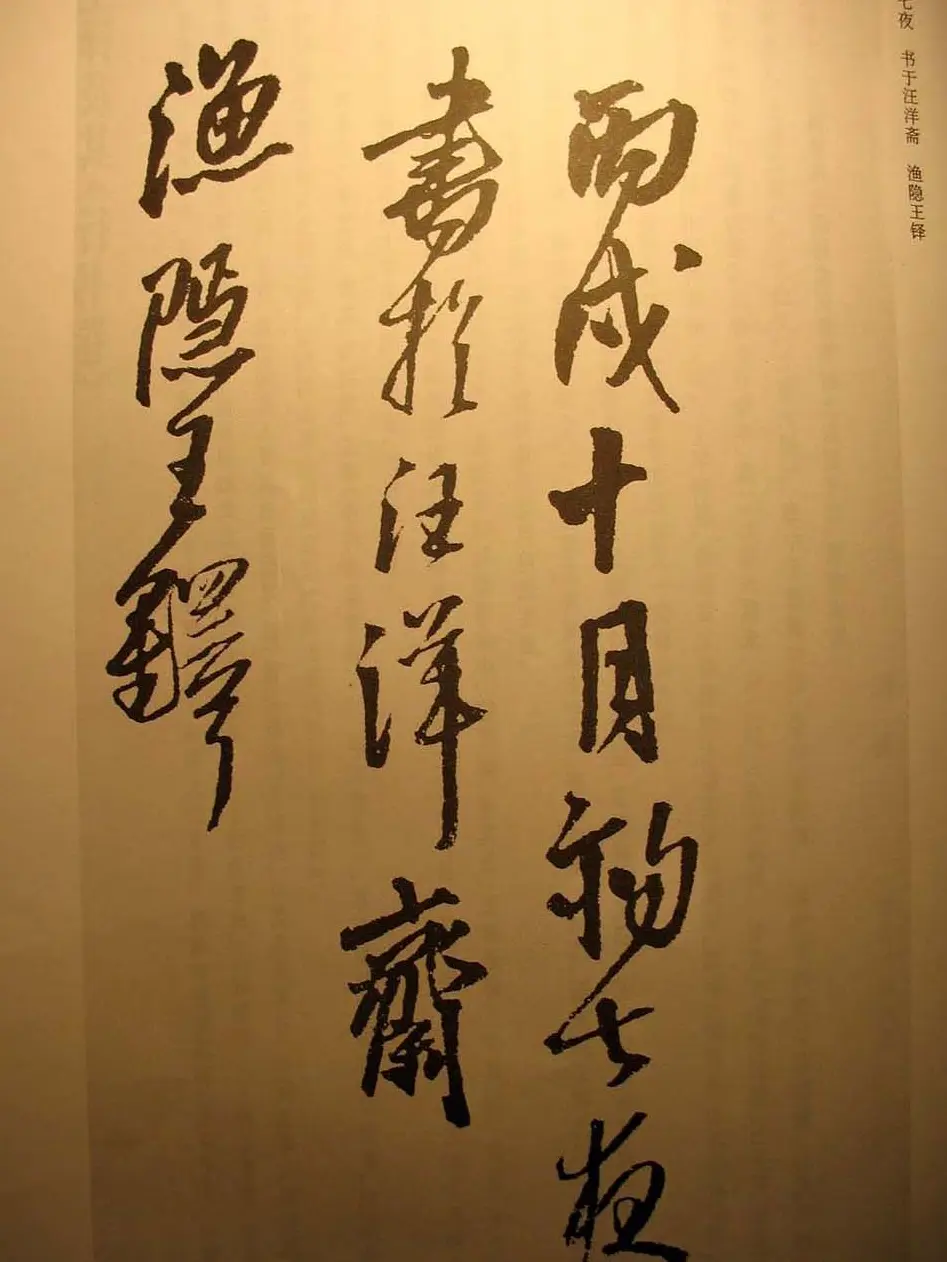 七夜 书于汪洋斋 渔隐王铎
丙戌十月初七夜
書於汪洋齋
漁隱王鐸